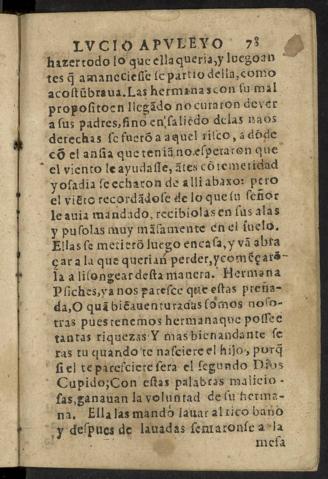 LVCIO APVLEYO 78
hazer todo lo que ella queria, y luego an
tes q̃ amaneciesse se partio della, como
acostũbraua. Las hermanas con su mal
proposito en llegãdo no curaron de ver
a sus padres, sino en saliẽdo de las naos
derechas se fuerõ a aquel risco, a dõde
cõ el ansia que teniã no esperaron que
el viento le ayudasse, ãtes cõ temeridad
y osadia se echaron de alli abaxo: pero
el viẽto recordãdose de lo que su señor
le auia mandado, recibiolas en sus alas
y pusolas muy mãsamente en el suelo.
Ellas se metierõ luego en casa, y vã abra
çar a la que querian perder, y comẽçarõ-
la a lisongear desta manera. Hermana
Psiches, ya nos paresce que estas preña-
da, O quã biẽauenturadas somos noso-
tras pues tenemos hermana que possee
tantas riquezas Y mas bienandante se
ras tu quando te nasciere el hijo, porq̃
si el te paresciere sera el segundo Dios
Cupido; Con estas palabras malicio-
sas, ganauan la voluntad de su herma-
na. Ella las mandò lauar al rico baño
y despues de lauadas sentaronse a la
mesa